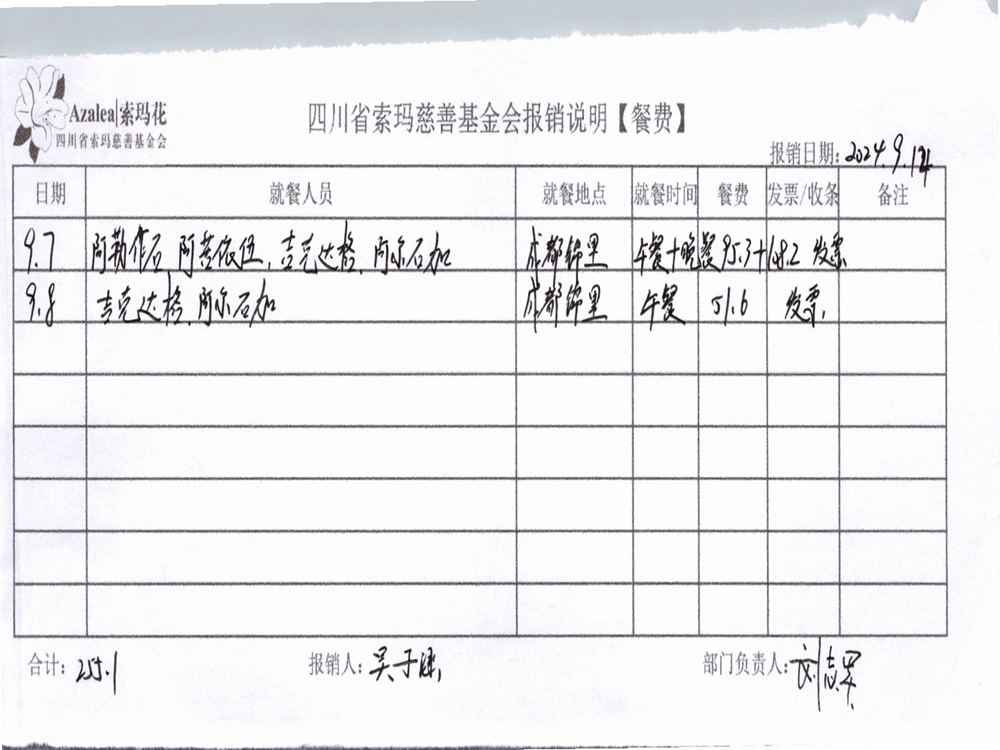 Azalea|索玛花
四川省索玛慈善基金会
四川省索玛慈善基金会报销说明【餐费】
报销日期：2024.9.14
日期 就餐人员 就餐地点 就餐时间 餐费 发票/收条 备注
9.7 阿勒作石 阿苦依伍、吉克达格、阿尔石加 成都锦里 午餐+晚餐 95.3+108.2 发票
9.8 吉克达格、阿尔石加 成都锦里 午餐 51.6 发票
合计：255.1 报销人：吴于 部门负责人：刘志军